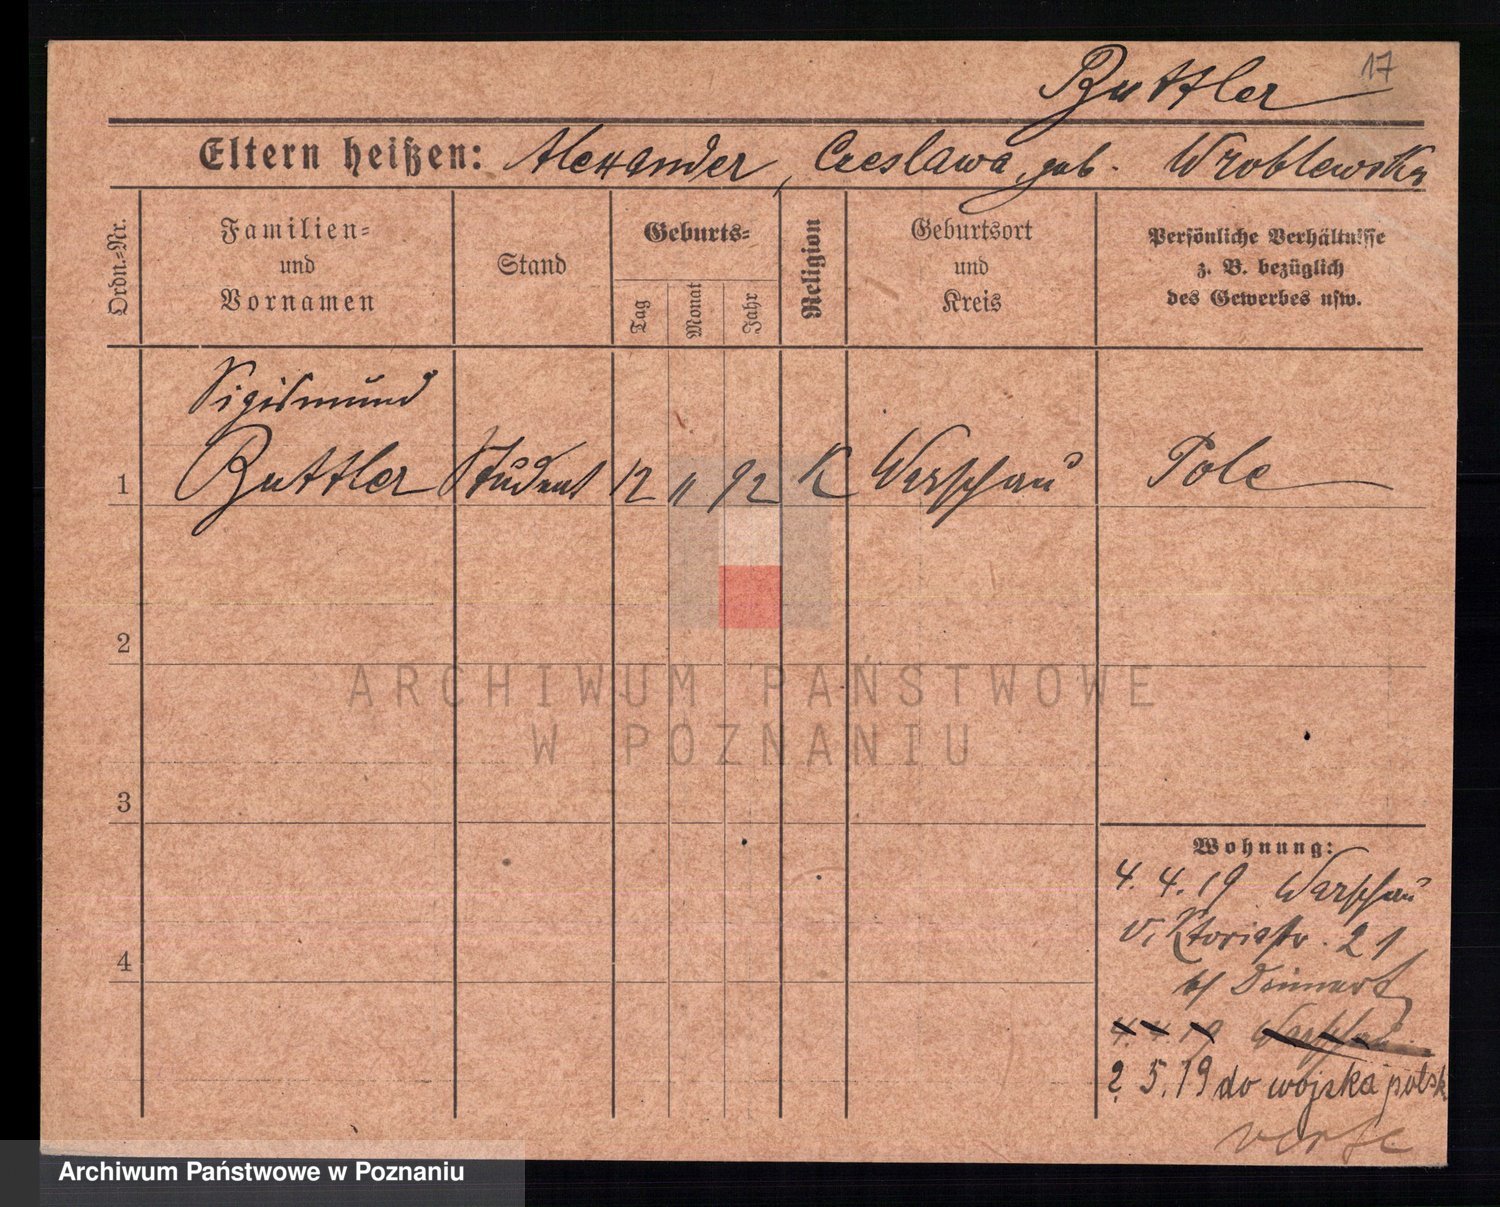 17
Buttler
Eltern heißen: Alexander, Czeslawa, geb. Wroblewska
Ordn.-Nr.
Familien- und Vornamen
Stand
Geburts-
Tag
Monat
Jahr
Religion
Geburtsort und Kreis
Persönliche Verhältnisse
z. B. bezüglich
des Gewerbes usw.
Sigismund
1 Buttler Student 12 11 92 K Warschau Pole
2
3
4
Wohnung:
4. 4. 19 Warschau
Viktoriastr. 21
b/
4. 4. 19 Warschau
2. 5. 19 do wojska polsk.
ARCHIWUM PAŃSTWOWE
W POZNANIU
Archiwum Państwowe w Poznaniu